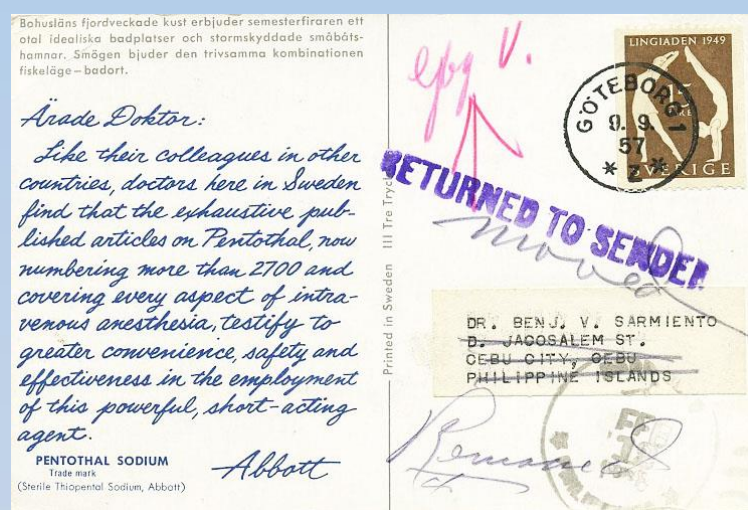 Bohusläns fjordveckade kust erbjuder semesterfiraren ett
otal idealiska badplatser och stormskyddade småbåts-
hamnar. Smögen bjuder den trivsamma kombinationen
fiskeläge – badort.
Ärade Doktor:
Like their colleagues in other
countries, doctors here in Sweden
find that the exhaustive pub-
lished articles on Pentothal, now
numbering more than 2700 and
covering every aspect of intra-
venous anesthesia, testify to
greater convenience, safety and
effectiveness in the employment
of this powerful, short-acting
agent.
PENTOTHAL SODIUM
Trade mark
(Sterile Thiopental Sodium, Abbott)
Abbott
Printed in Sweden III Tre Tryck
LINGIADEN 1949
SVERIGE
GÖTEBORG 1
9. 9.
57
* Z *
RETURNED TO SENDER
moved
DR. BENJ. V. SARMIENTO
D. JACOSALEM ST.
CEBU CITY, CEBU
PHILIPPINE ISLANDS